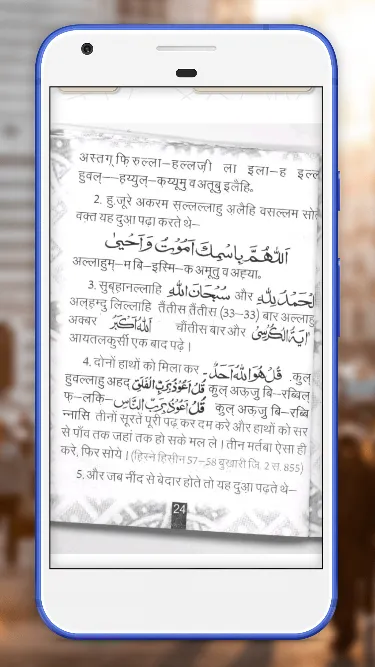 अस्तग् फ़िरुल्ला–हल्लज़ी ला इला–ह इल्ल
हुवल्––हय्युल्–कय्यूमु व अतूबु इलैहि०
2. हु.जूरे अकरम सल्लल्लाहु अ़लैहि वसल्लम सोते
वक्त यह दुआ़ पढ़ा करते थे–
اَللّٰهُمَّ بِاسْمِكَ اَمُوْتُ وَ اَحْيٰی
अल्लाहुम्–म बि–इस्मि–क अमूतु व अह़्या०
3. सुब्हानल्लाहि سُبْحَانَ اللّٰهِ और اَلْحَمْدُ لِلّٰهِ
अल्हम्दु लिल्लाहि तैंतीस तैंतीस (33–33) बार अल्लाहु
अक्बर اَللّٰهُ اَکْبَرُ चौंतीस बार और اٰيَةُ الْکُرْسِیْ
आयतलकुर्सी एक बाद पढ़े।
4. दोनों हाथों को मिला कर – قُلْ هُوَ اللّٰهُ اَحَدٌ .कुल्
हुवल्लाहु अहद् قُلْ اَعُوْذُ بِرَبِّ الْفَلَقِ कुल् अऊ़जु बि–रब्बिल्
फ़–लकि– قُلْ اَعُوْذُ بِرَبِّ النَّاسِ कुल् अऊ़जु बि–रब्बि
न्नासि तीनों सूरतें पूरी पढ़ कर दम करे और हाथों को सर
से पाँव तक जहां तक हो सके मल ले। तीन मर्तबा ऐसा ही
करे, फिर सोये। (हिस्ने हिसीन 57–58 बुखारी जि. 2 स. 855)
5. और जब नींद से बेदार होते तो यह दुआ़ पढ़ते थे–
24